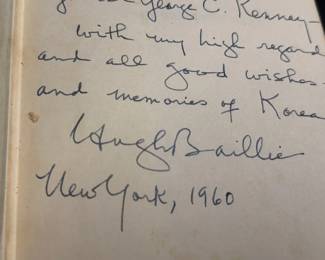 George C. Kenney—
with my high regard
and all good wishes
and memories of Korea
Hugh Baillie
New York, 1960